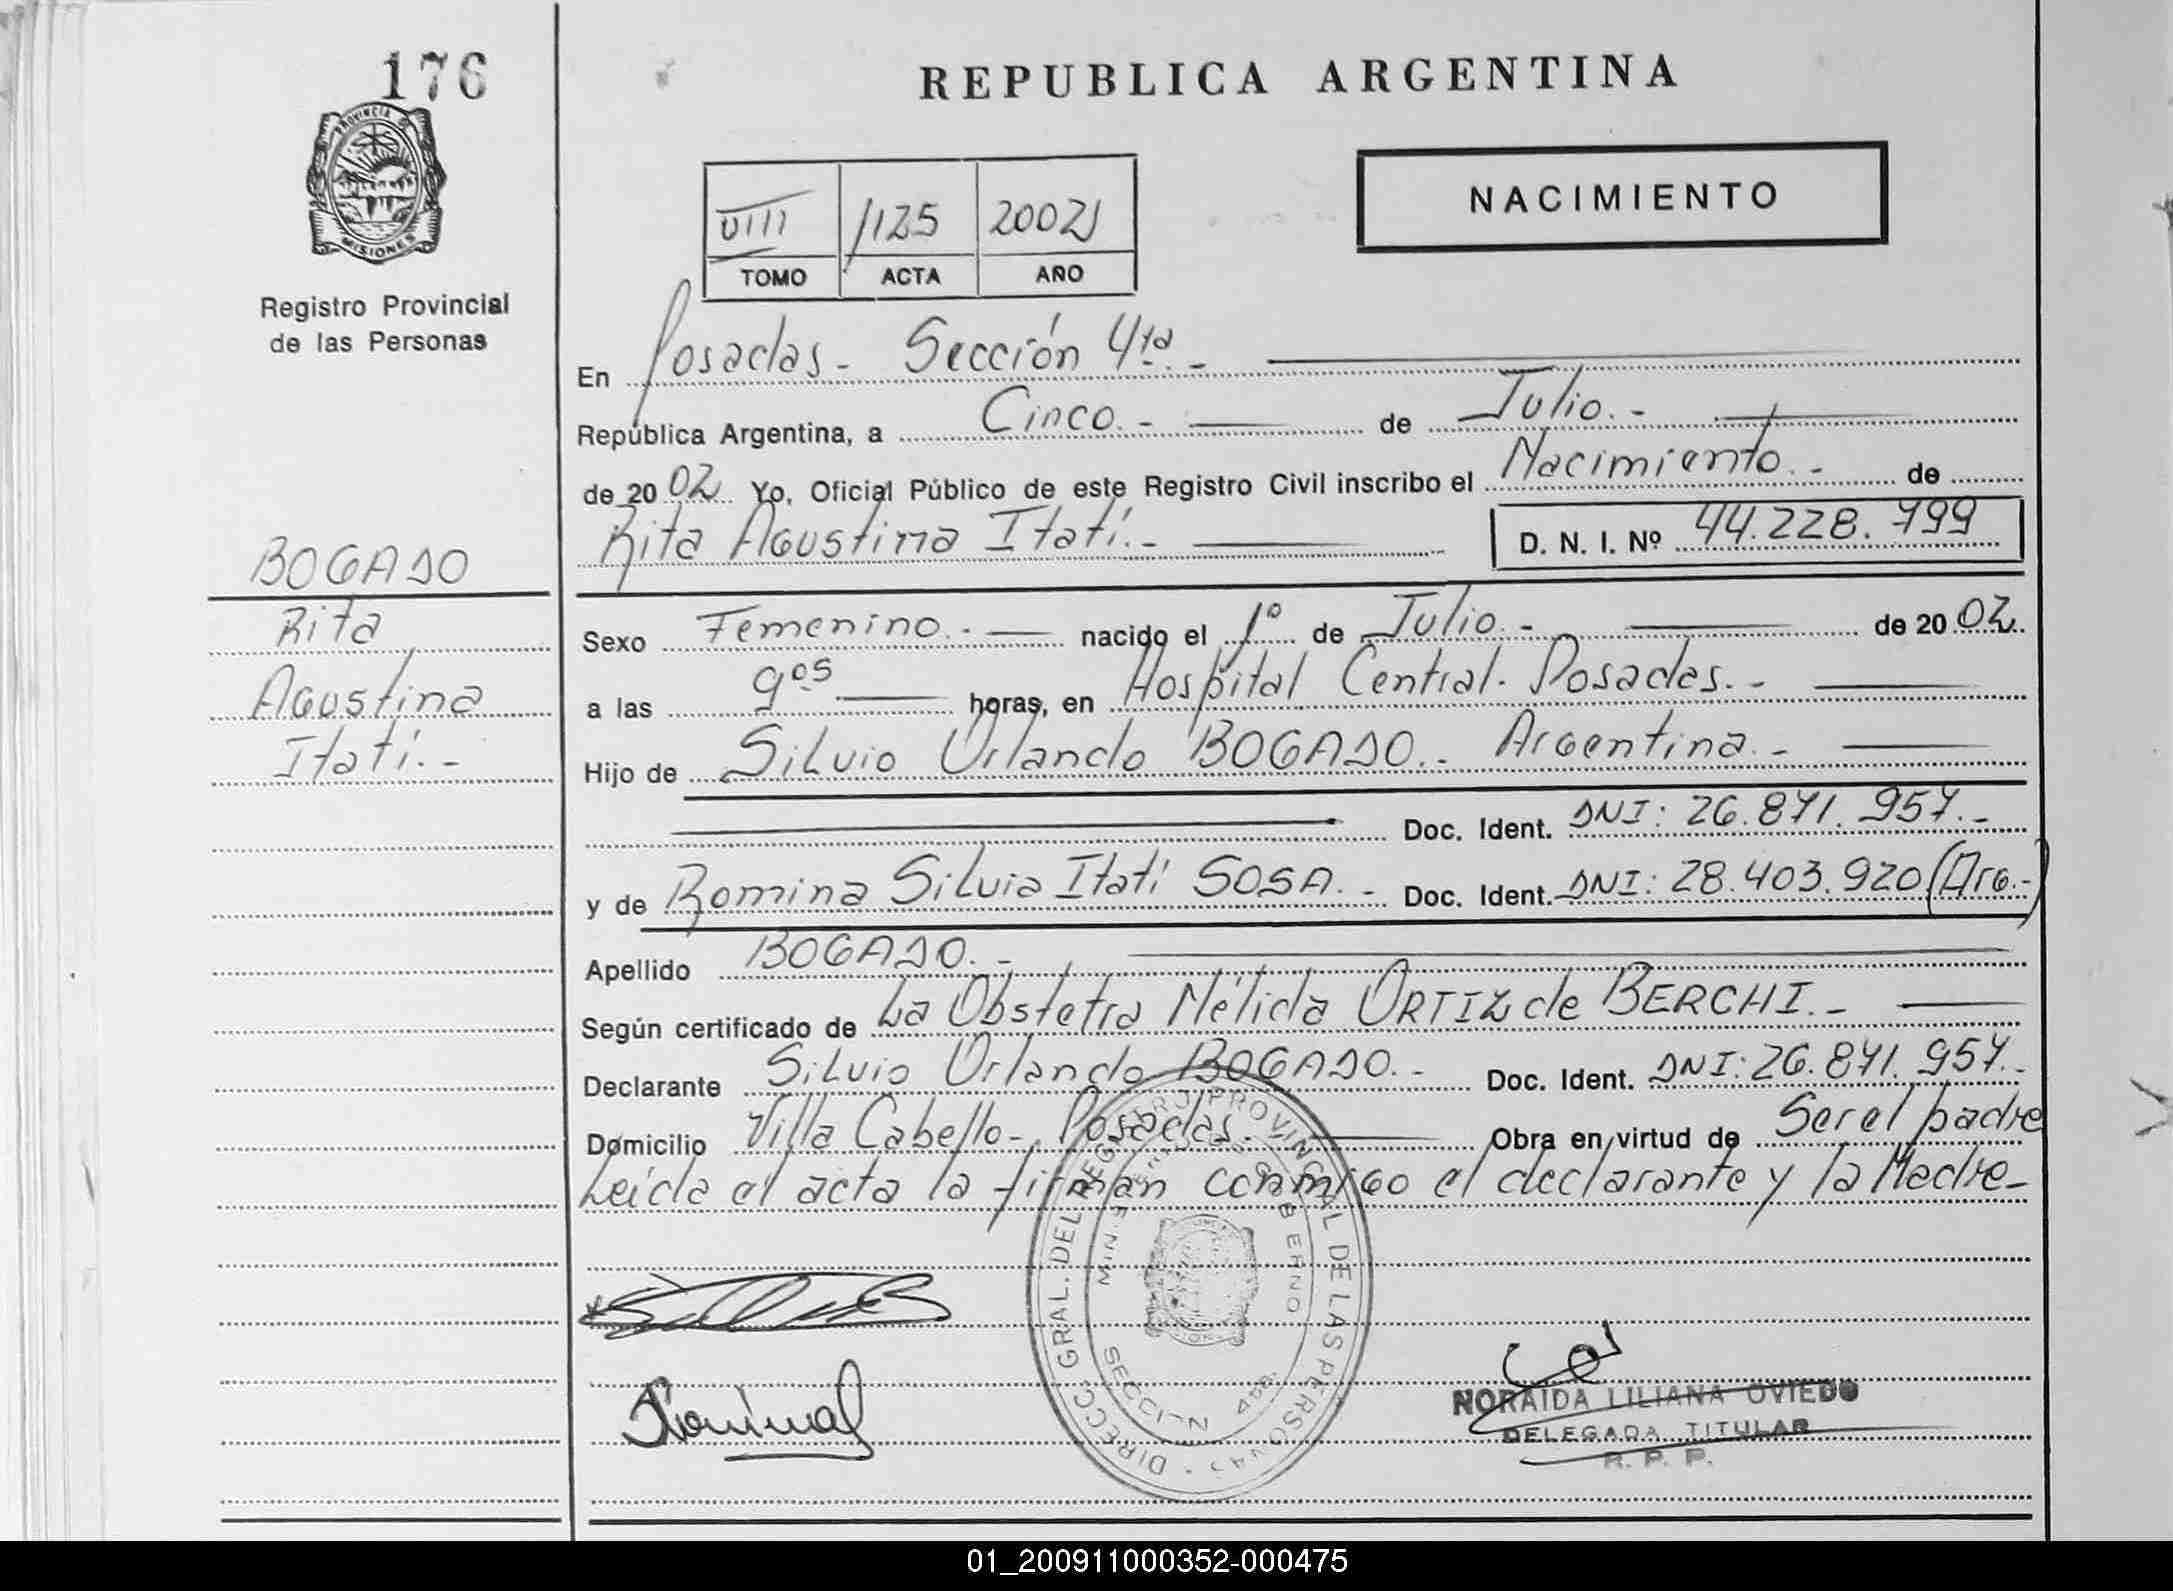 176
REPUBLICA ARGENTINA
PROVINCIA DE MISIONES
NACIMIENTO
VIII 1125 2002
TOMO ACTA AÑO
Registro Provincial
de las Personas
En Posadas.- Sección 4ta.-
República Argentina, a Cinco.- de Julio.-
de 2002 Yo, Oficial Público de este Registro Civil inscribo el Nacimiento.- de
Rita Agustina Itatí.- D. N. I. Nº 44.228.799
BOGADO
Rita
Agustina
Itatí.-
Sexo Femenino.- nacido el 1º de Julio.- de 2002.
a las 9os horas, en Hospital Central. Posadas.-
Hijo de Silvio Orlando BOGADO.- Argentina.-
Doc. Ident. DNI: 26.871.957.-
y de Romina Silvia Itatí SOSA.- Doc. Ident. DNI: 28.403.920 (Arg.-)
Apellido BOGADO.-
Según certificado de La Obstetra Nélida ORTIZ de BERCHI.-
Declarante Silvio Orlando BOGADO.- Doc. Ident. DNI: 26.871.957.-
Domicilio Villa Cabello.- Posadas.- Obra en virtud de Ser el padre
Leída el acta la firman conmigo el declarante y la Madre-
DIRECC. GRAL. DEL REGISTRO PROVINCIAL DE LAS PERSONAS
MIN. DE GOBIERNO
SECCION 4ta
NORAIDA LILIANA OVIEDO
DELEGADA TITULAR
R. P. P.
01_200911000352-000475